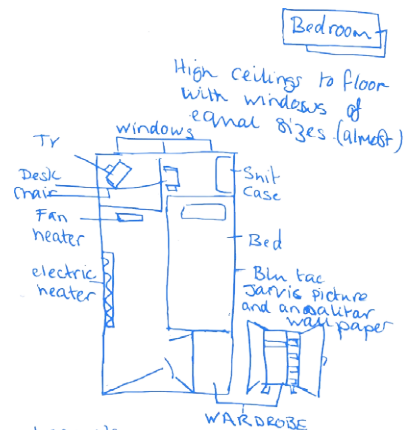 Bedroom
High ceilings to floor
with windows of
equal sizes (almost)
windows
TV
Desk
chair
Suit
case
Fan
heater
Bed
electric
heater
Blu tac
Jarvis picture
and
wallpaper
WARDROBE